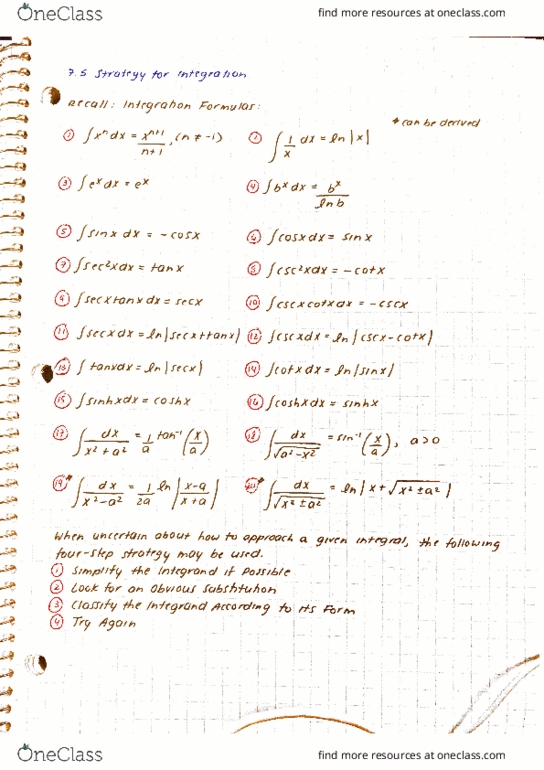 OneClass find more resources at oneclass.com
7.5 Strategy for Integration
Recall: Integration Formulas:
* can be derived
① ∫xⁿdx = xⁿ⁺¹/n+1, (n ≠ -1) ② ∫1/x dx = ln|x|
③ ∫eˣdx = eˣ ④ ∫bˣdx = bˣ/ln b
⑤ ∫sinx dx = -cosx ⑥ ∫cosxdx = sinx
⑦ ∫sec²xdx = tanx ⑧ ∫csc²xdx = -cotx
⑨ ∫secxtanxdx = secx ⑩ ∫cscxcotxdx = -cscx
⑪ ∫secxdx = ln|secx+tanx| ⑫ ∫cscxdx = ln|cscx-cotx|
⑬ ∫tanxdx = ln|secx| ⑭ ∫cotxdx = ln|sinx|
⑮ ∫sinhxdx = coshx ⑯ ∫coshxdx = sinhx
⑰ ∫dx/x²+a² = 1/a tan⁻¹(x/a) ⑱ ∫dx/√a²-x² = sin⁻¹(x/a), a>0
⑲* ∫dx/x²-a² = 1/2a ln|x-a/x+a| ⑳* ∫dx/√x²±a² = ln|x+√x²±a²|
When uncertain about how to approach a given integral, the following
four-step strategy may be used.
① Simplify the Integrand if Possible
② Look for an Obvious Substitution
③ Classify the Integrand According to Its Form
④ Try Again
OneClass find more resources at oneclass.com